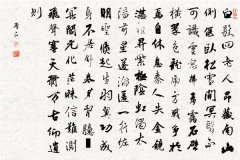 白發四老人昂藏南山
側偃臥松雪間冥翳不
可識雲窗拂青靄石壁
橫翠色龍虎方戰爭於
焉自休息秦人失金鏡
漢祖昇紫極陰虹濁太
陽前星遂淪匿一行佐
明起生羽翼功成
身不居舒卷在胸臆
窅冥合元化茫昧信難測
飛聲塞天衢萬古仰遺
則